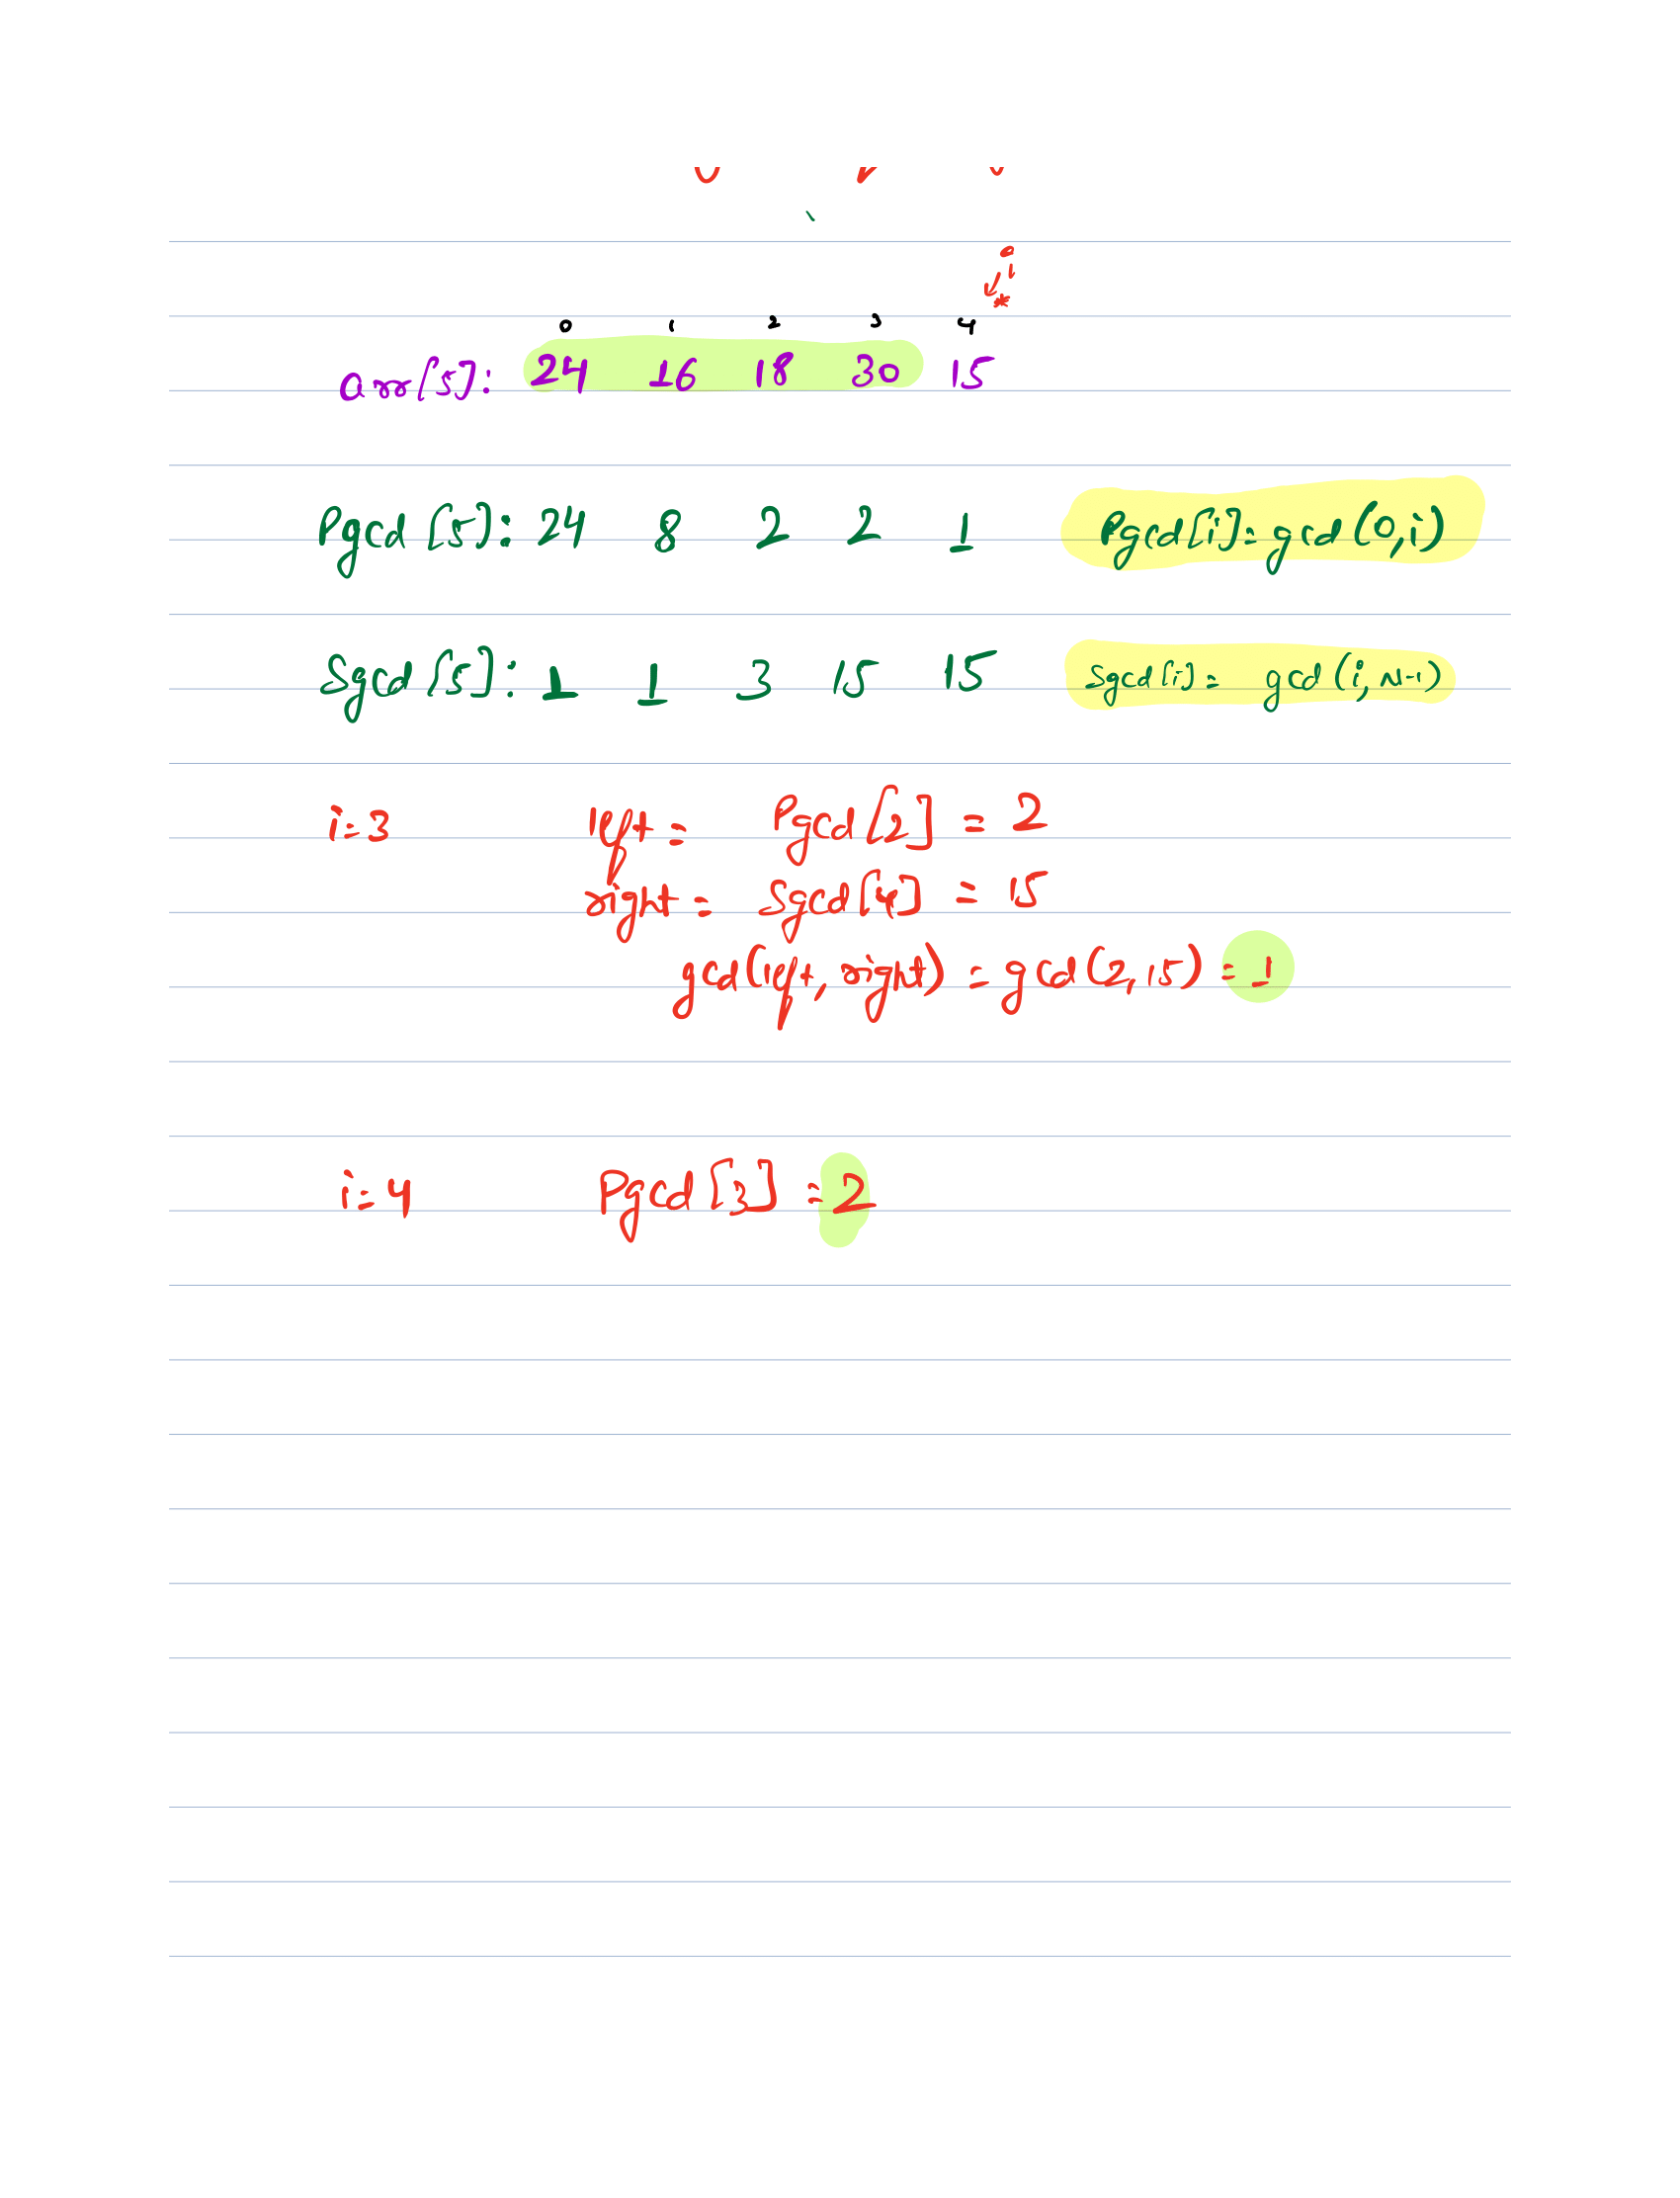 i
0 1 2 3 4
arr[5]: 24 16 18 30 15
Pgcd[5]: 24 8 2 2 1 Pgcd[i]= gcd(0,i)
Sgcd[5]: 1 1 3 15 15 Sgcd[i]= gcd(i, N-1)
i=3 left = Pgcd[2] = 2
right = Sgcd[4] = 15
gcd(left, right) = gcd(2,15) = 1
i=4 Pgcd[3] = 2